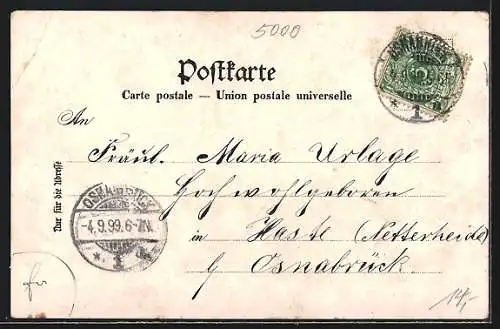 5000
Postkarte
Carte postale — Union postale universelle
An
Fräul. Maria Urlage
Hochwohlgeboren
in Haste (Netterheide)
b/ Osnabrück.
Nur für die Adresse
OSNABRÜCK
-4.9.99.6-7N.
* 1 a.
OSNABRÜCK
4.9.99.6-7N.
* 1 a